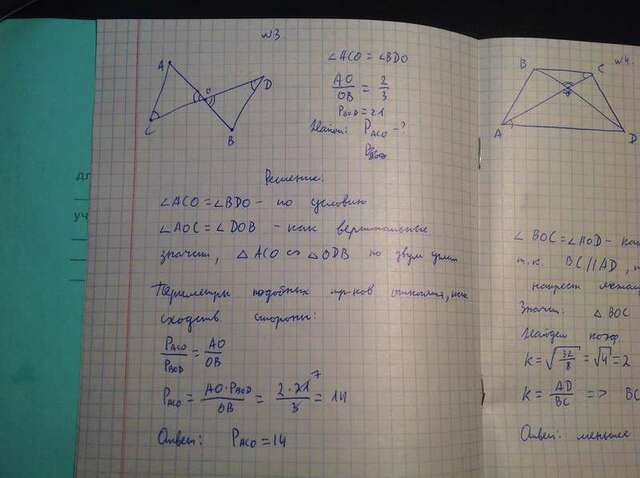 №3
A
O
D
C
B
∠ACO = ∠BDO
AO/OB = 2/3
P_BOD = 21
Найти: P_ACO - ?
Решение:
∠ACO = ∠BDO - по условию
∠AOC = ∠DOB - как вертикальные
значит, △ACO ∽ △ODB по двум углам
Периметры подобных
сходств. стороны:
P_ACO/P_BOD = AO/OB
P_ACO = AO·P_BOD/OB = 2·21/3 = 14
7
Ответ: P_ACO = 14
№4.
B
C
A
D
∠BOC = ∠AOD -
т.к. BC || AD,
Значит: △BOC
Найдем коэф.
k = √(32/8) = √4 = 2
k = AD/BC => BC
Ответ: меньшее